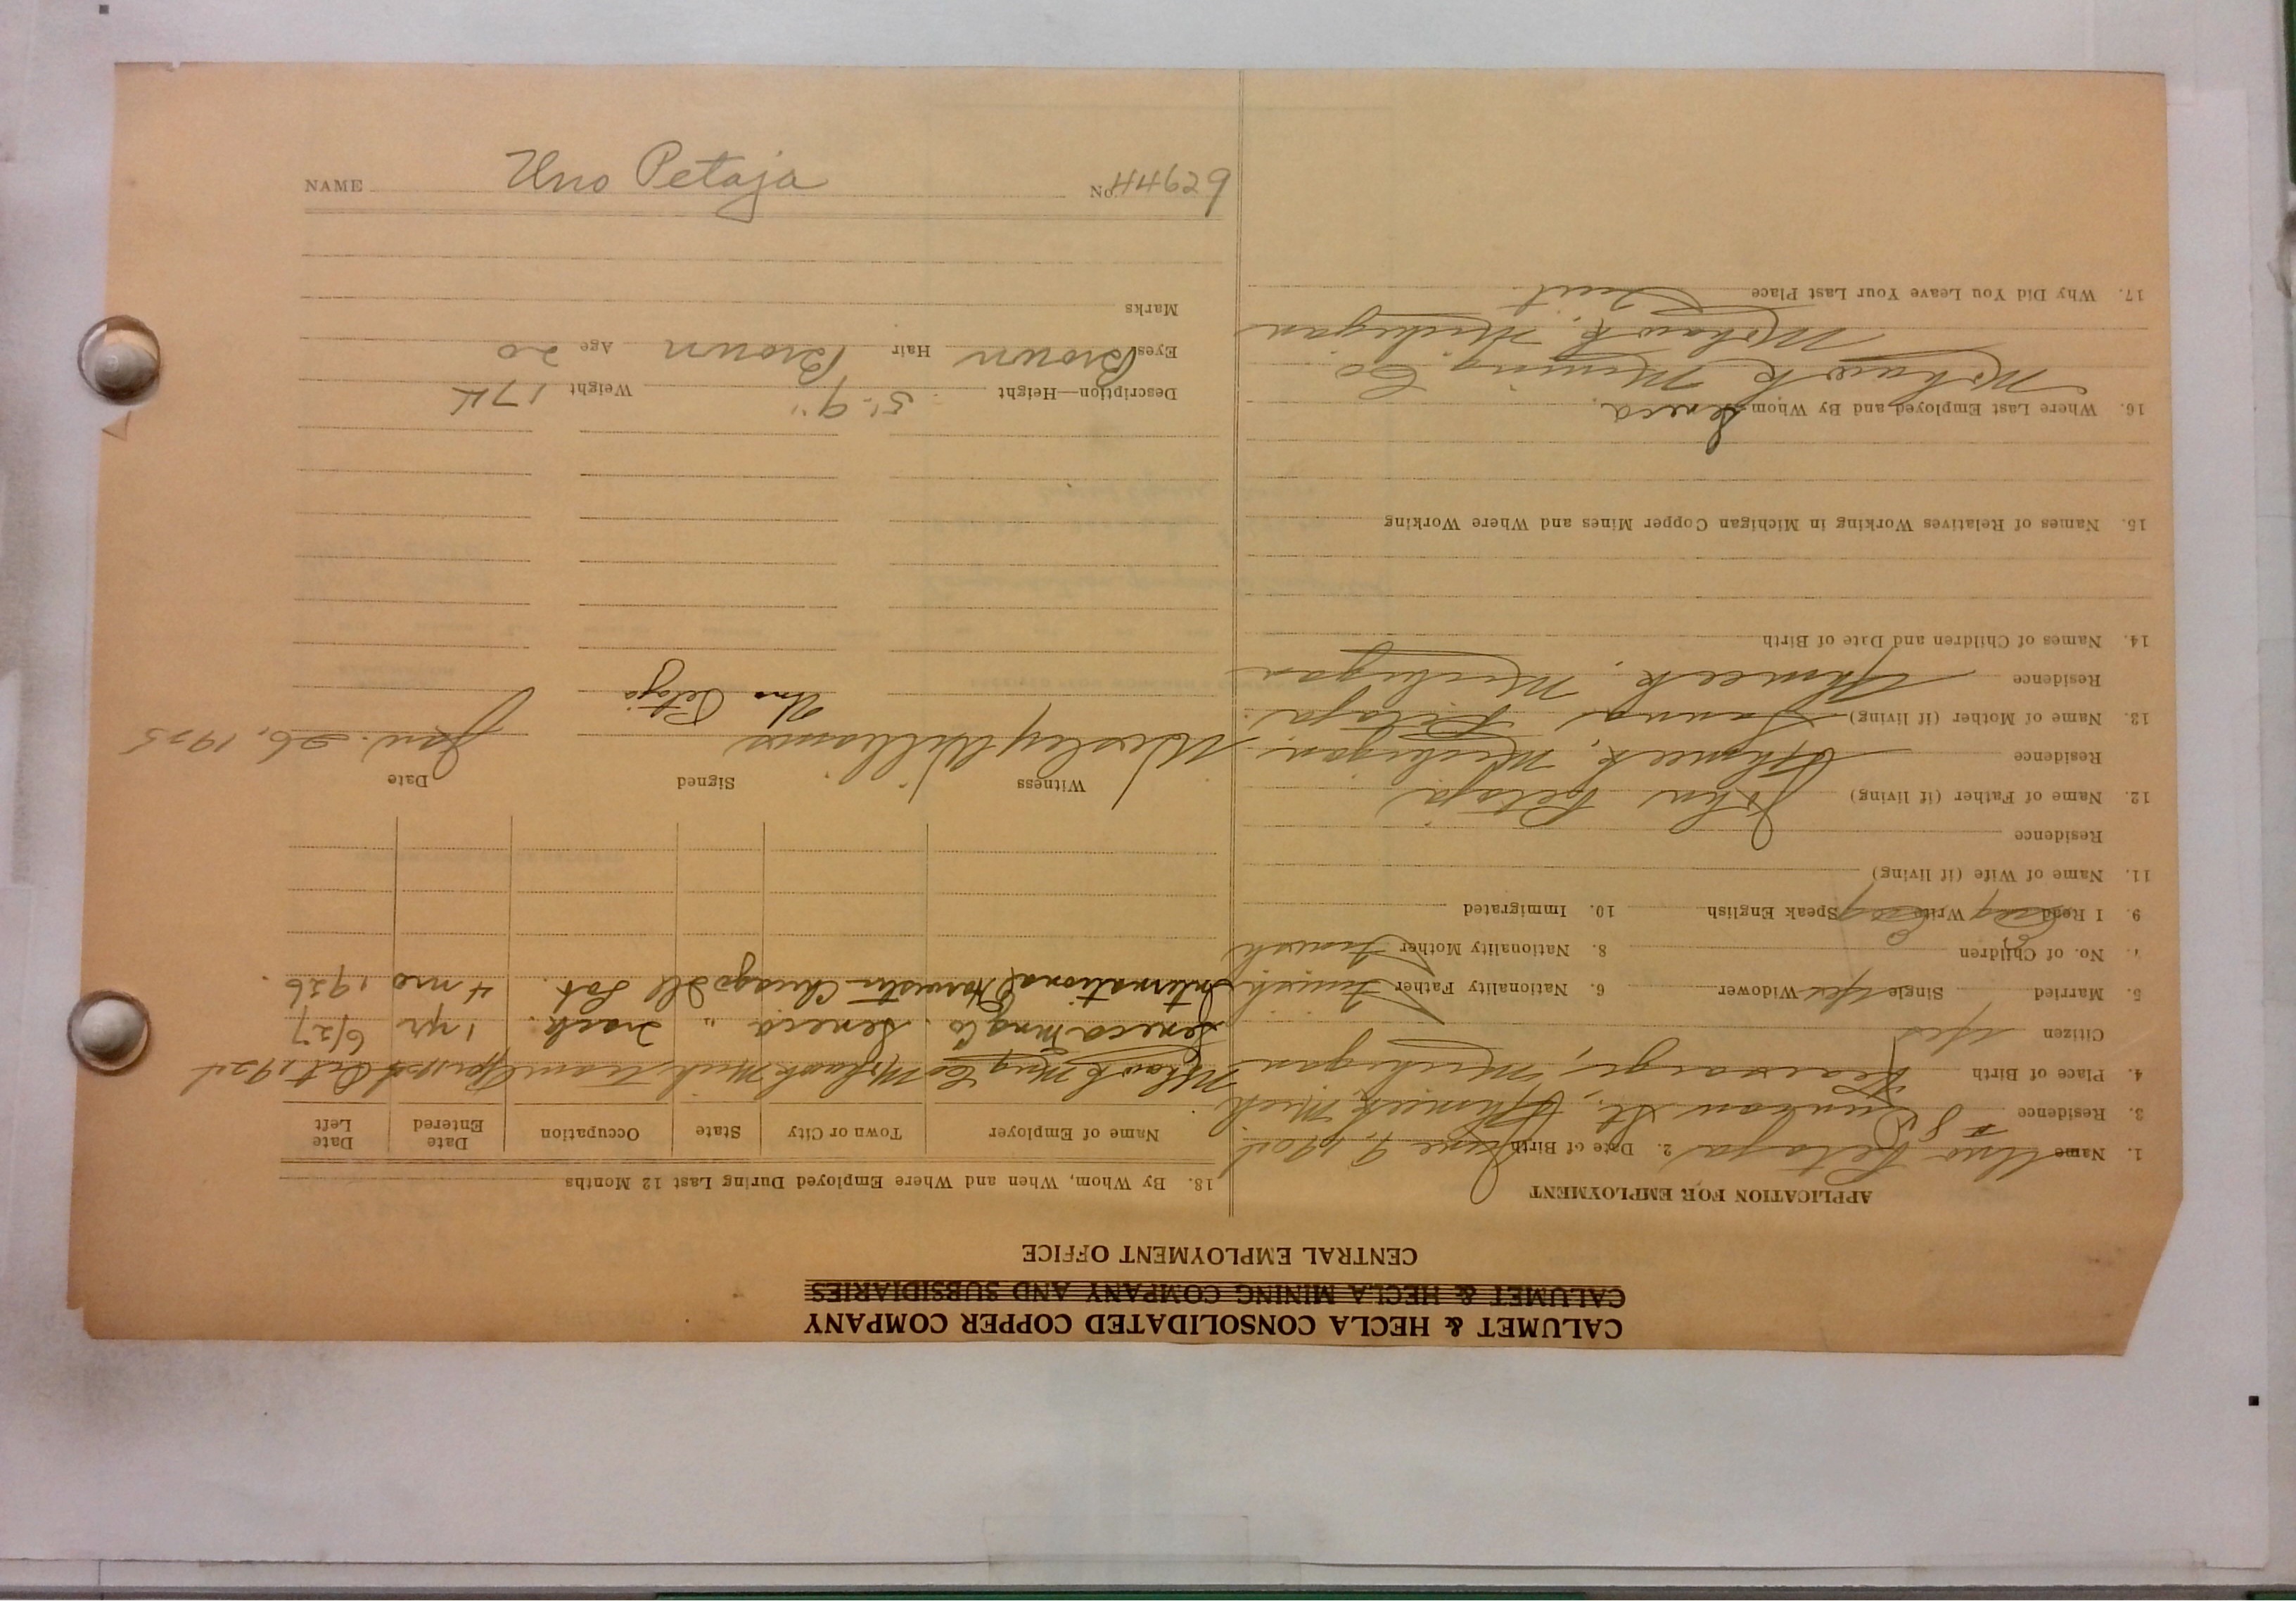 CALUMET & HECLA CONSOLIDATED COPPER COMPANY
CALUMET & HECLA MINING COMPANY AND SUBSIDIARIES
CENTRAL EMPLOYMENT OFFICE
APPLICATION FOR EMPLOYMENT
1. Name Uno Petaja 2. Date of Birth June 9, 1904
3. Residence St., Ahmeek, Mich
4. Place of Birth Kearsarge, Michigan
Citizen Yes
5. Married Single Yes Widower 6. Nationality Father Finnish
7. No. of Children 8. Nationality Mother Finnish
9. I Read Yes Write Yes Speak English 10. Immigrated
11. Name of Wife (if living)
Residence
12. Name of Father (if living) John Petaja
Residence Ahmeek, Michigan
13. Name of Mother (if living) Petaja
Residence Ahmeek, Michigan
14. Names of Children and Date of Birth
15. Names of Relatives Working in Michigan Copper Mines and Where Working
16. Where Last Employed and By Whom Seneca
Mohawk Mining Co
Mohawk, Michigan
17. Why Did You Leave Your Last Place Quit
18. By Whom, When and Where Employed During Last 12 Months
Name of Employer Town or City State Occupation Date Entered Date Left
Mohawk Mng Co Mohawk Mich Tram Oct 1924
Seneca Mng Co. Seneca " 1 yr 6/27
International Harvester Chicago Ill Lab. 4 mo 1926.
Witness Signed Date
Wesley Williams Uno Petaja Jan. 26, 1925
Description—Height 5'-9" Weight 174
Eyes Brown Hair Brown Age 20
Marks
NAME Uno Petaja No. 44629